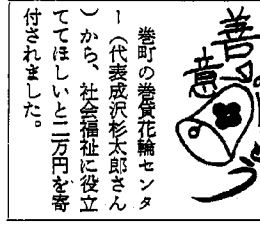 善意
巻町の巻貸花輪センタ
ー（代表成沢杉太郎さん
）から、社会福祉に役立
ててほしいと二万円を寄
付されました。